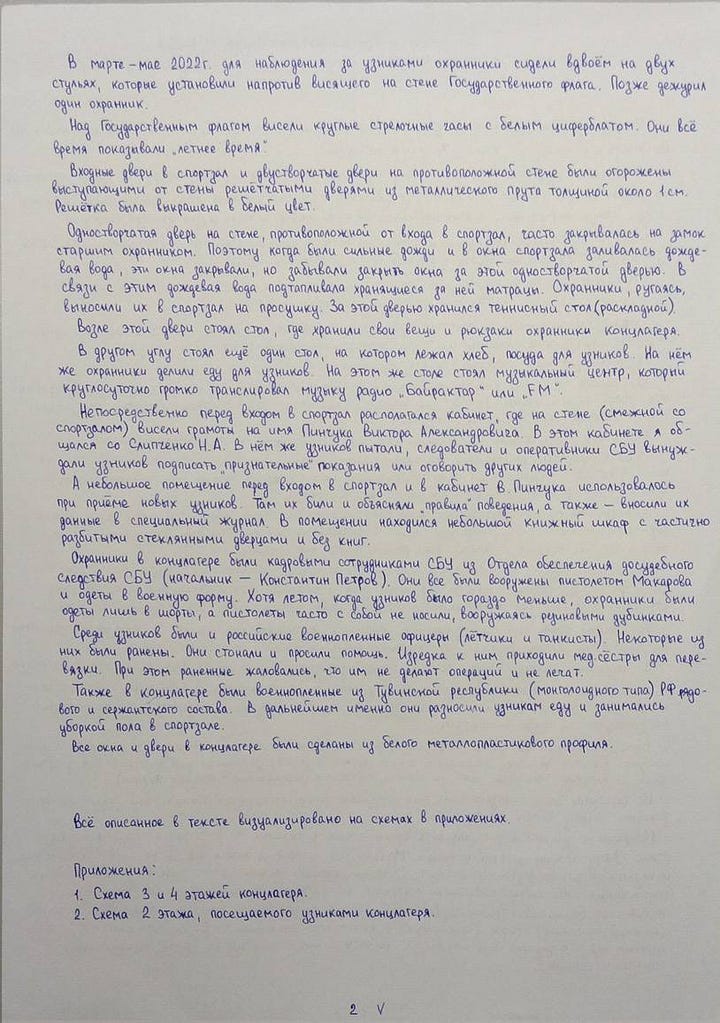 В марте-мае 2022г. для наблюдения за узниками охранники сидели вдвоём на двух
стульях, которые установили напротив висящего на стене Государственного флага. Позже дежурил
один охранник.
Над Государственным флагом висели круглые стрелочные часы с белым циферблатом. Они всё
время показывали „летнее время".
Входные двери в спортзал и двустворчатые двери на противоположной стене были огорожены
выступающими от стены решётчатыми дверями из металлического прута толщиной около 1 см.
Решётка была выкрашена в белый цвет.
Одностворчатая дверь на стене, противоположной от входа в спортзал, часто закрывалась на замок
старшим охранником. Поэтому когда были сильные дожди и в окна спортзала заливалась дожде-
вая вода, эти окна закрывали, но забывали закрыть окна за этой одностворчатой дверью. В
связи с этим дождевая вода подтапливала хранящиеся за ней матрацы. Охранники, ругаясь,
выносили их в спортзал на просушку. За этой дверью хранился теннисный стол (раскладной).
Возле этой двери стоял стол, где хранили свои вещи и рюкзаки охранники концлагеря.
В другом углу стоял ещё один стол, на котором лежал хлеб, посуда для узников. На нём
же охранники делили еду для узников. На этом же столе стоял музыкальный центр, который
круглосуточно громко транслировал музыку радио „Байрактар" или „FM".
Непосредственно перед входом в спортзал располагался кабинет, где на стене (смежной со
спортзалом) висели грамоты на имя Пинчука Виктора Александровича. В этом кабинете я об-
щался со Слипченко Н.А. В нём же узников пытали, следователи и оперативники СБУ вынуж-
дали узников подписать „признательные" показания или оговорить других людей.
А небольшое помещение перед входом в спортзал и в кабинет В. Пинчука использовалось
при приёме новых узников. Там их били и объясняли „правила" поведения, а также – вносили их
данные в специальный журнал. В помещении находился небольшой книжный шкаф с частично
разбитыми стеклянными дверцами и без книг.
Охранники в концлагере были кадровыми сотрудниками СБУ из Отдела обеспечения досудебного
следствия СБУ (начальник – Константин Петров). Они все были вооружены пистолетом Макарова
и одеты в военную форму. Хотя летом, когда узников было гораздо меньше, охранники были
одеты лишь в шорты, а пистолеты часто с собой не носили, вооружаясь резиновыми дубинками.
Среди узников были и российские военнопленные офицеры (лётчики и танкисты). Некоторые из
них были ранены. Они стонали и просили помощь. Изредка к ним приходили мед.сёстры для пере-
вязки. При этом раненные жаловались, что им не делают операций и не лечат.
Также в концлагере были военнопленные из Тувинской республики (монголоидного типа) РФ рядо-
вого и сержантского состава. В дальнейшем именно они разносили узникам еду и занимались
уборкой пола в спортзале.
Все окна и двери в концлагере были сделаны из белого металлопластикового профиля.
Всё описанное в тексте визуализировано на схемах в приложениях.
Приложения:
1. Схема 3 и 4 этажей концлагеря.
2. Схема 2 этажа, посещаемого узниками концлагеря.
2 V